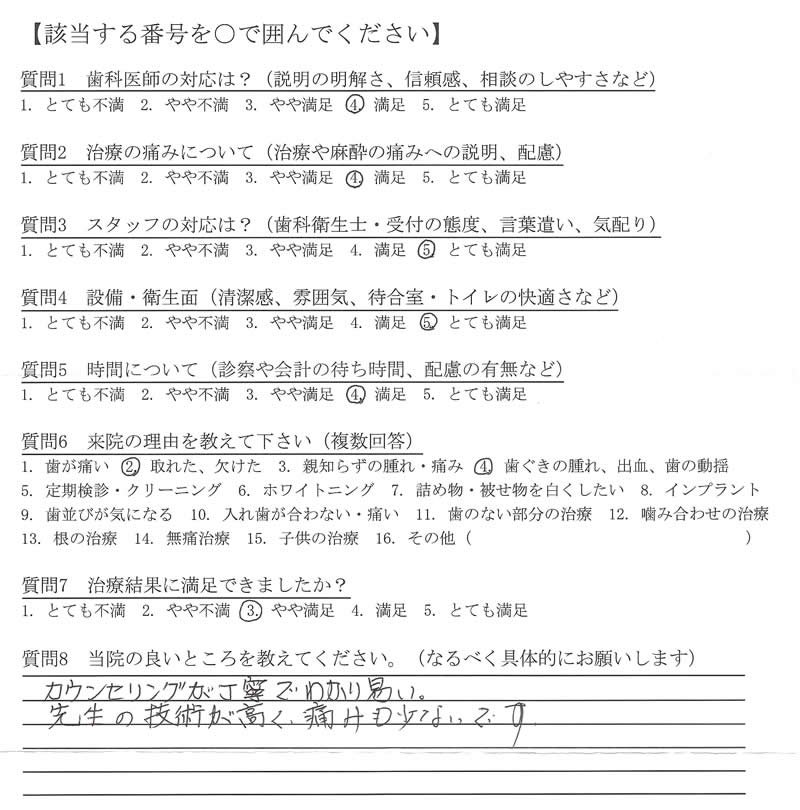 【該当する番号を○で囲んでください】
質問1　歯科医師の対応は？（説明の明解さ、信頼感、相談のしやすさなど）
1. とても不満　2. やや不満　3. やや満足　④ 満足　5. とても満足
質問2　治療の痛みについて（治療や麻酔の痛みへの説明、配慮）
1. とても不満　2. やや不満　3. やや満足　④ 満足　5. とても満足
質問3　スタッフの対応は？（歯科衛生士・受付の態度、言葉遣い、気配り）
1. とても不満　2. やや不満　3. やや満足　4. 満足　⑤ とても満足
質問4　設備・衛生面（清潔感、雰囲気、待合室・トイレの快適さなど）
1. とても不満　2. やや不満　3. やや満足　4. 満足　⑤ とても満足
質問5　時間について（診察や会計の待ち時間、配慮の有無など）
1. とても不満　2. やや不満　3. やや満足　④ 満足　5. とても満足
質問6　来院の理由を教えて下さい（複数回答）
1. 歯が痛い　② 取れた、欠けた　3. 親知らずの腫れ・痛み　④ 歯ぐきの腫れ、出血、歯の動揺
5. 定期検診・クリーニング　6. ホワイトニング　7. 詰め物・被せ物を白くしたい　8. インプラント
9. 歯並びが気になる　10. 入れ歯が合わない・痛い　11. 歯のない部分の治療　12. 噛み合わせの治療
13. 根の治療　14. 無痛治療　15. 子供の治療　16. その他（　　　　　　　　　　）
質問7　治療結果に満足できましたか？
1. とても不満　2. やや不満　③ やや満足　4. 満足　5. とても満足
質問8　当院の良いところを教えてください。（なるべく具体的にお願いします）
カウンセリングが丁寧でわかり易い。
先生の技術が高く、痛みも少ないです。